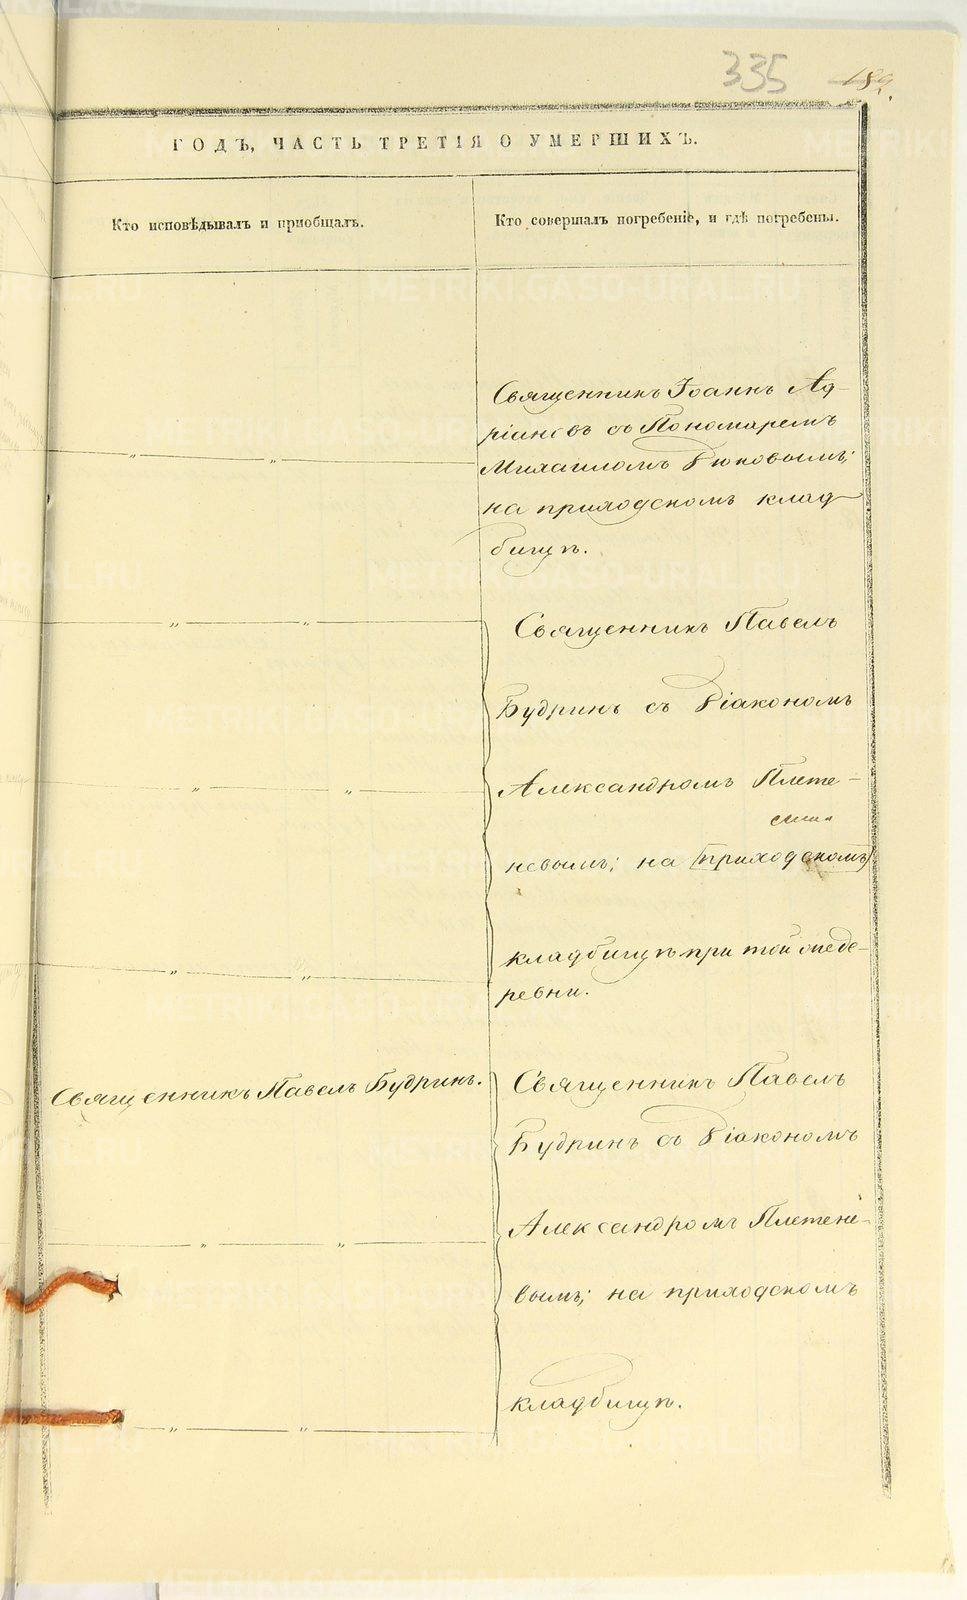 335 189.
ГОДЪ, ЧАСТЬ ТРЕТІЯ О УМЕРШИХЪ.
Кто исповѣдывалъ и пріобщалъ.
Кто совершалъ погребеніе, и гдѣ погребены.
Священникъ Іоаннъ Ад-
ріановъ съ Пономаремъ
Михаиломъ Дюковымъ;
на приходскомъ клад-
бищѣ.
Священникъ Павелъ
Будринъ съ Діакономъ
Александромъ Плете-
невымъ; на приходскомъ
кладбищѣ при той же де-
ревни.
Священникъ Павелъ Будринъ.
Священникъ Павелъ
Будринъ съ Діакономъ
Александромъ Плетене-
вымъ; на приходскомъ
кладбищѣ.
METRIKI.GASO-URAL.RU